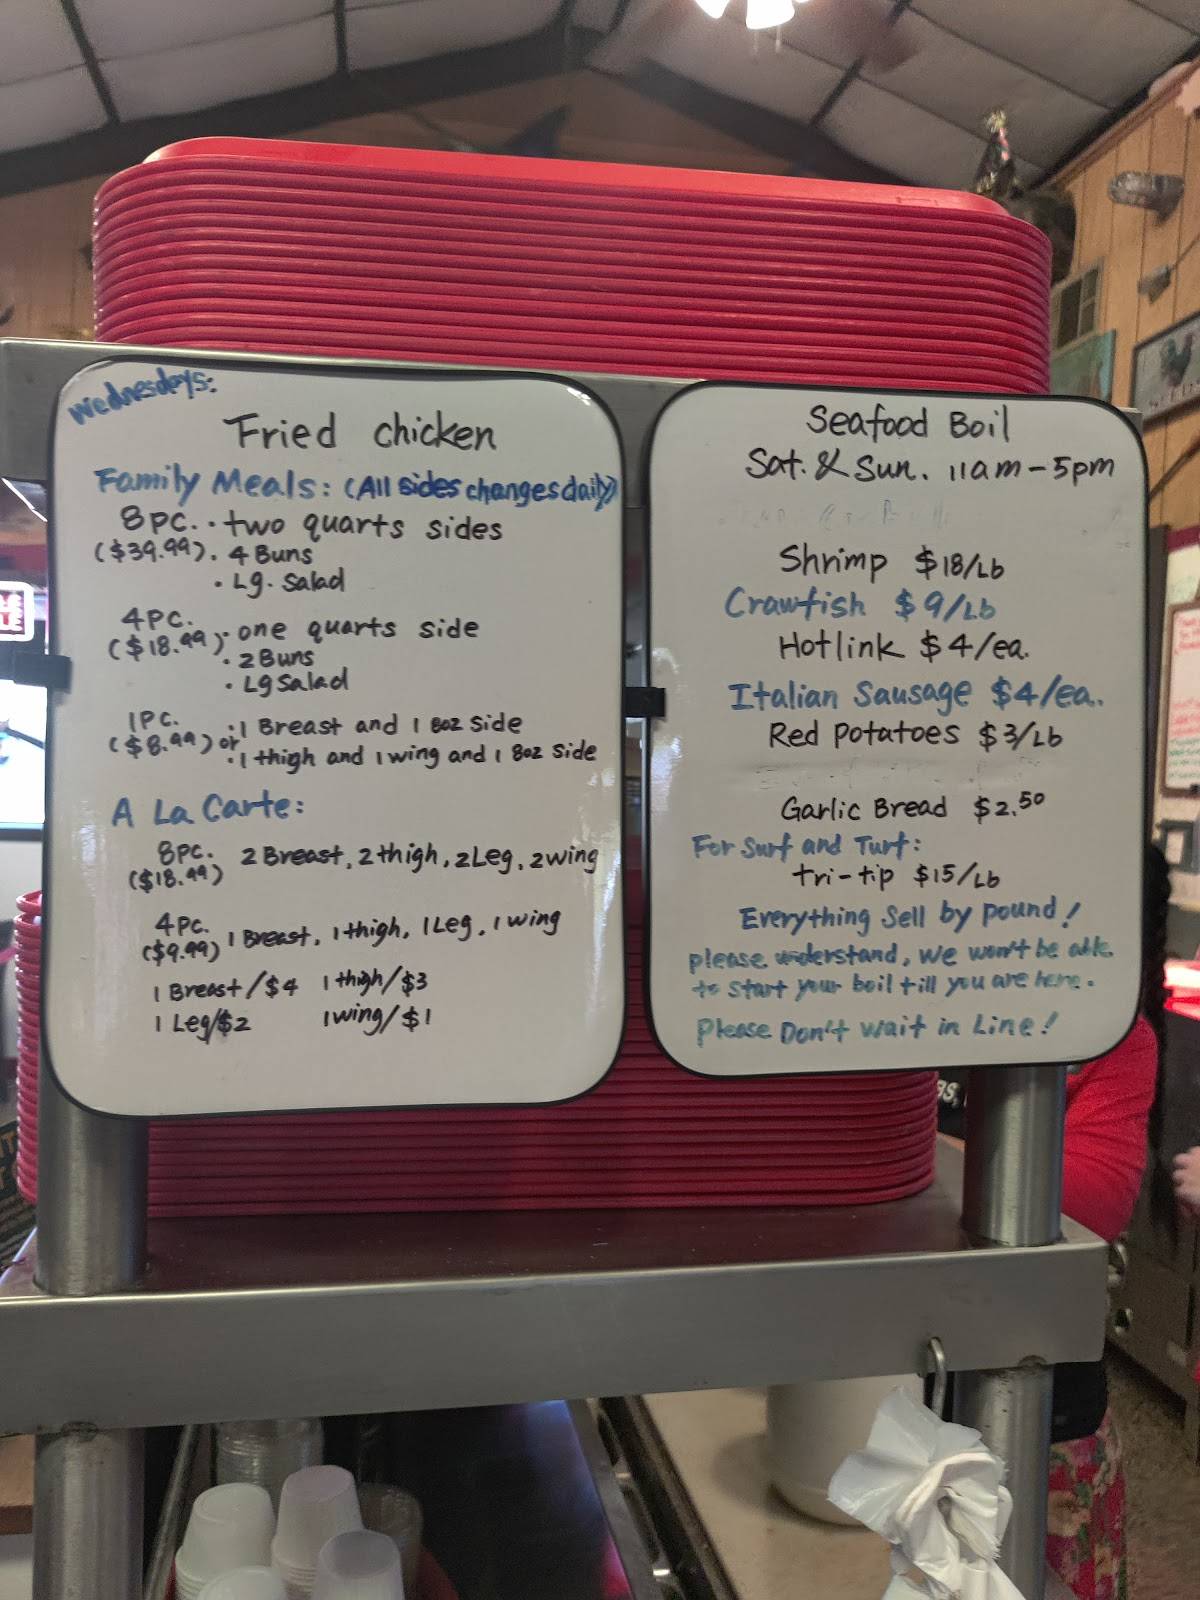 Wednesdays:
Fried chicken
Family Meals: (All sides changes daily)
8pc. · two quarts sides
($39.99) · 4 Buns
· Lg. Salad
4pc.
($18.99) · one quarts side
· 2 Buns
· Lg Salad
1pc. · 1 Breast and 1 8oz Side
($8.99) or · 1 thigh and 1 wing and 1 8oz Side
A La Carte:
8pc. 2 Breast, 2 thigh, 2 Leg, 2 wing
($18.99)
4pc. 1 Breast, 1 thigh, 1 Leg, 1 wing
($9.99)
1 Breast/$4 1 thigh/$3
1 Leg/$2 1 wing/$1
Seafood Boil
Sat. & Sun. 11am-5pm
Shrimp $18/Lb
Crawfish $9/Lb
Hotlink $4/ea.
Italian Sausage $4/ea..
Red Potatoes $3/Lb
Garlic Bread $2.50
For Surf and Turf:
tri-tip $15/Lb
Everything Sell by pound!
please understand, we won't be able
to start your boil till you are here.
Please Don't wait in Line!